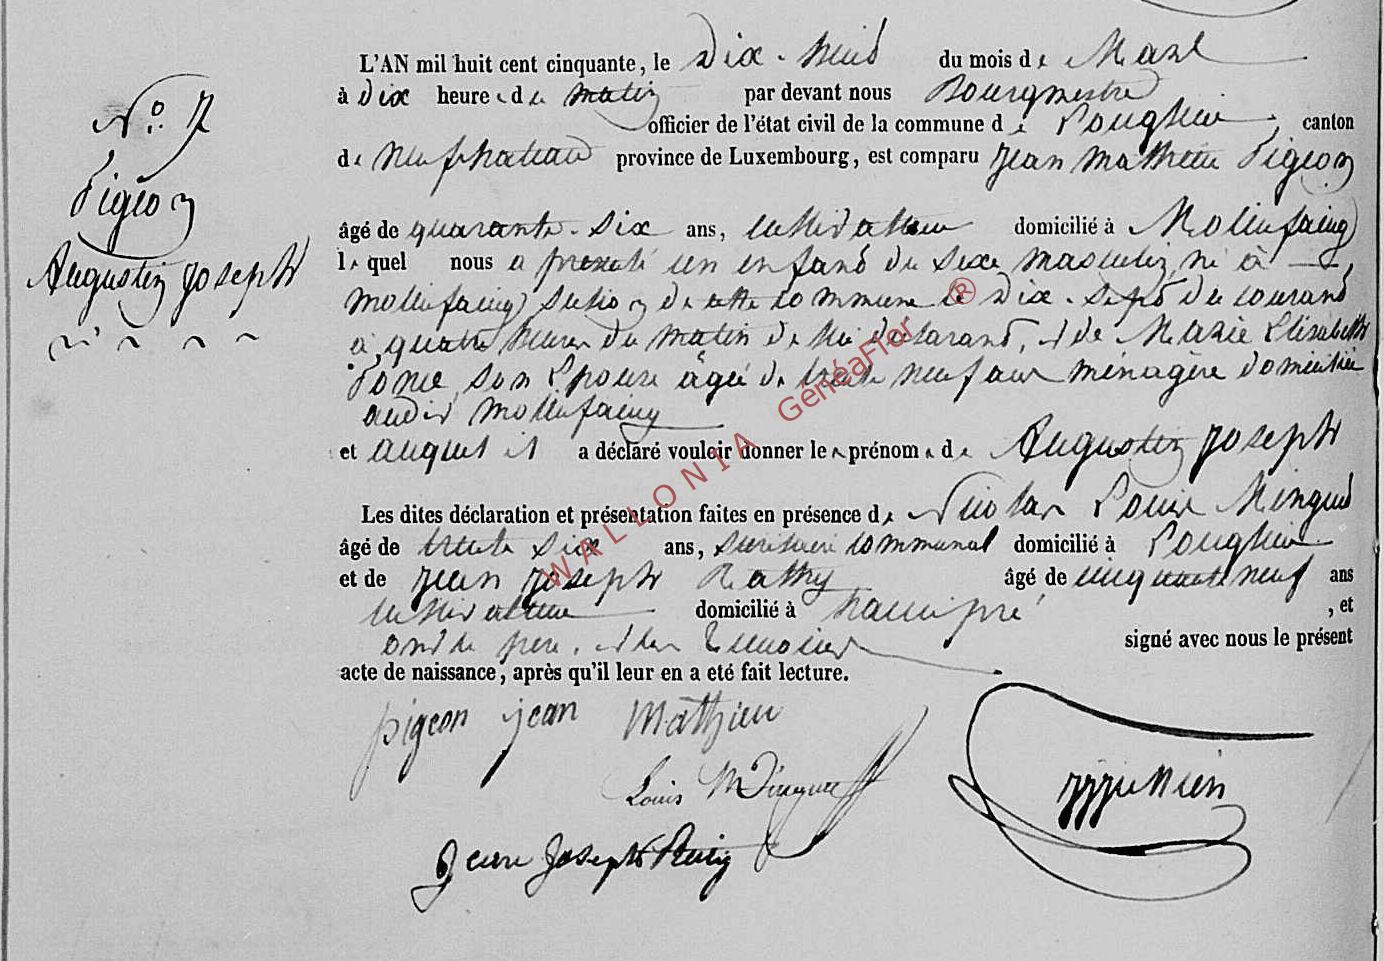 N.° 7
Pigeon
Augustin Joseph
L'AN mil huit cent cinquante, le Dix-huit du mois de Mars
à Dix heures du matin par devant nous Bourgmestre
officier de l'état civil de la commune de Longlier, canton
de Neufchateau province de Luxembourg, est comparu Jean Mathieu Pigeon
âgé de quarante-six ans, cultivateur domicilié à Mollinfaing
lequel nous a présenté un enfant du sexe masculin, né à
mollinfaing section de cette commune le Dix-sept du courant
à quatre heures du matin de lui déclarant, et de Marie Elisabeth
son Epouse âgée de trente neuf ans ménagère domiciliée
audit mollinfaing
et auquel il a déclaré vouloir donner les prénoms de Augustin Joseph
Les dites déclaration et présentation faites en présence de Nicolas Louis Minguet
âgé de trente six ans, secrétaire communal domicilié à Longlier
et de Jean Joseph âgé de cinquante neuf ans
cultivateur domicilié à hamipré, et
ont le père et les témoins signé avec nous le présent
acte de naissance, après qu'il leur en a été fait lecture.
pigeon jean Mathieu
Louis Minguet
Jean Joseph
WALLONIA GénéaFlor ®